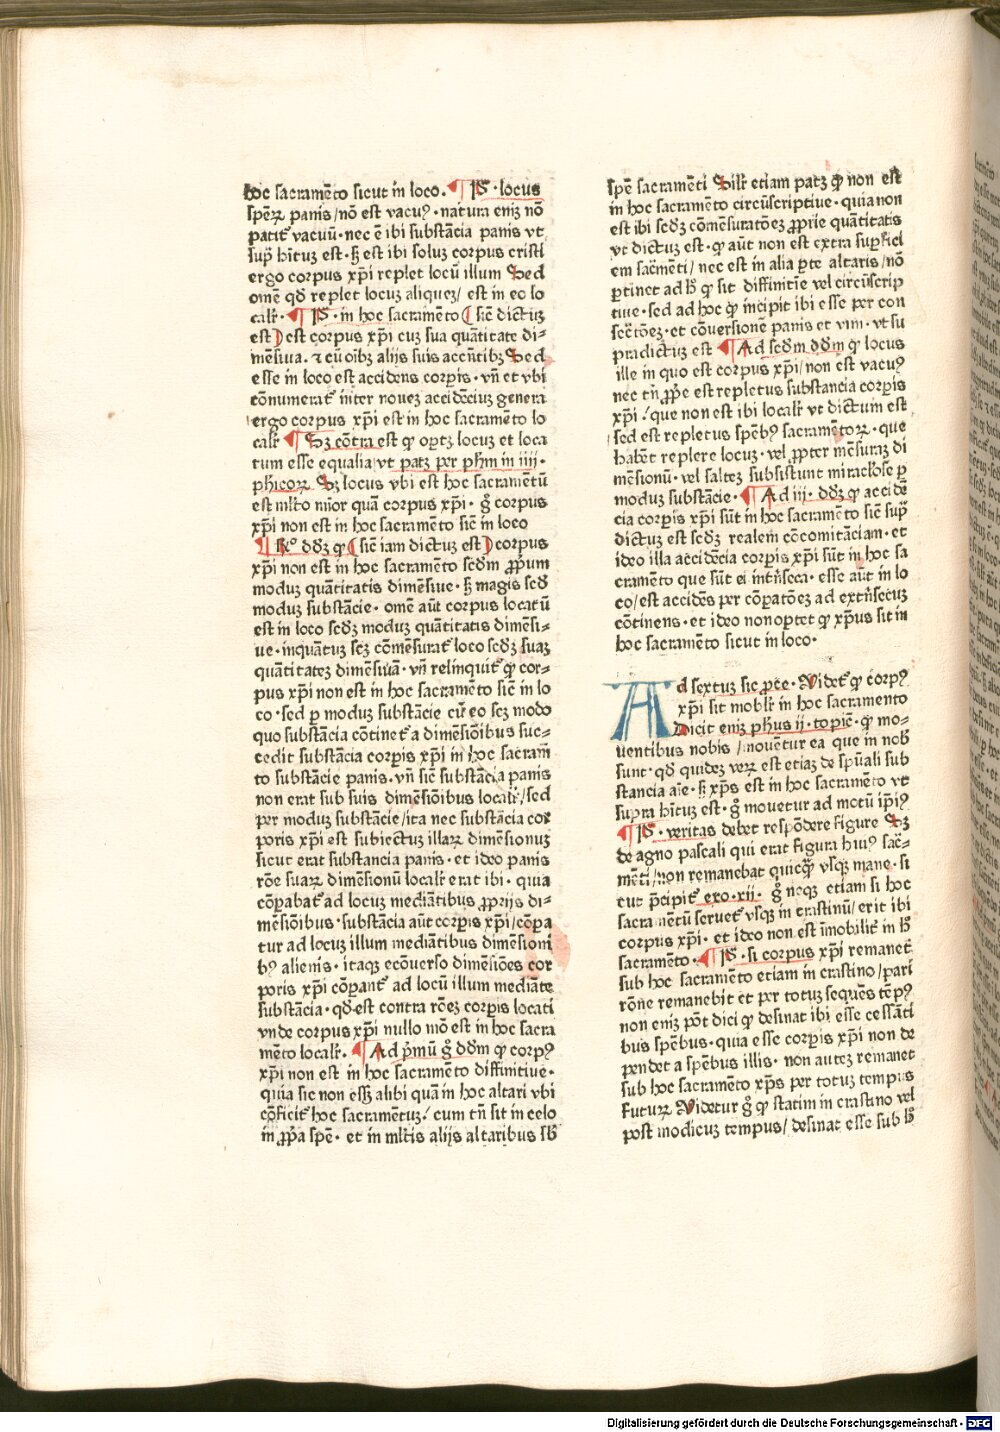 hoc sacramēto sicut in loco. ¶ Iꝭ. locus
speꝝ panis/ nō est vacuꝰ. natura eniꝫ nō
patit᷑ vacuū. nec ē ibi substācia panis vt
supͣ hītuꝫ est. ꝫ est ibi soluꝫ corpus cristi
ergo corpus xp̄i replet locū illum Sed
omē qd̄ replet locuꝫ aliqueꝫ/ est in eo lo
calr̄. ¶ Iꝭ. in hoc sacramēto (sic̄ dictuꝫ
est) est corpus xp̄i cuꝫ sua quātitate di⸗
mēsiua. ⁊ cū oībꝫ alijs suis accn̄tibꝫ Sed
esse in loco est accidens corꝑis. vn̄ et vbi
cōnumerat᷑ inter noueꝫ accidēciuꝫ genera
ergo corpus xp̄i est in hoc sacramēto lo
calr̄ ¶ Sꝫ cōtra est ꝙ oꝑtꝫ locuꝫ et loca
tum esse equalia vt patꝫ per ph̄m in iiij.
phicoꝝ. Sꝫ locus vbi est hoc sacramētū
est ml̄to mīor quā corpus xp̄i. gͦ corpus
xp̄i non est in hoc sacramēto sic̄ in loco
¶ Rͦ dd̄ꝫ ꝙ (sic̄ iam dictuꝫ est) corpus
xp̄i non est in hoc sacramēto scd̄m ꝓpͥum
moduꝫ quātitatis dimēsiue. ꝫ magis scd̄
moduꝫ substācie. omē aūt corpus locatū
est in loco scd̄ꝫ moduꝫ quātitatis dimēsi⸗
ue. inquātuꝫ scꝫ cōmēsurat᷑ loco scd̄ꝫ suaꝫ
quātitateꝫ dimēsiuā. vn̄ relinquit᷑ ꝙ cor⸗
pus xp̄i non est in hoc sacramēto sic̄ in lo
co. sed ꝑ moduꝫ substācie cū eo scꝫ modo
quo substācia cōtinet᷑ a dimēsiōibus suc⸗
cedit substācia corꝑis xp̄i in hoc sacram̄
to substācie panis. vn̄ sic̄ substācia panis
non erat sub suis dimēsiōibus localr̄/ sed
per moduꝫ substācie/ ita nec substācia cor
poris xp̄i est subiectuꝫ illaꝝ dimēsionuꝫ
sicut erat substancia panis. et ideo panis
rōe suaꝝ dimēsionū localr̄ erat ibi. quia
cōꝑabat᷑ ad locuꝫ mediātibus ꝓprijs di⸗
mēsiōibus. substācia aūt corꝑis xp̄i/ cōpa
tur ad locuꝫ illum mediātibus dimēsioni
bꝰ alienis. itaqꝫ ecōuerso dimēsiōes cor
poris xp̄i cōꝑant᷑ ad locū illum mediāte
substācia. qd̄ est contra rōeꝫ corꝑis locati
vnde corpus xp̄i nullo mō est in hoc sacra
mēto localr̄. ¶ Ad pͥmū gͦ dd̄m ꝙ corpꝰ
xp̄i non est in hoc sacramēto diffinitiue.
quia sic non eēt alibi quā in hoc altari vbi
cōficit᷑ hoc sacramētuꝫ/ cum tn̄ sit in celo
in ꝓpͥa spē. et in ml̄tis alijs altaribus sb̄
spē sacramēti Silr̄ etiam patꝫ ꝙ non est
in hoc sacramēto circūscriptiue. quia non
est ibi scd̄ꝫ cōmēsuratōeꝫ ꝓprie quātitatis
vt dictuꝫ est. ꝙ aūt non est extra suꝑfici
em sacr̄mēti/ nec est in alia ꝑte altaris/ nō
ꝑtinet ad hͦ ꝙ sit diffinitie vel circūscrip
tiue. sed ad hoc ꝙ incipit ibi esse per con
secr̄tōeꝫ. et cōuersionē panis et vini. vt su
pradictuꝫ est ¶ Ad scd̄m dd̄m ꝙ locus
ille in quo est corpus xp̄i/ non est vacuꝰ
nec tn̄ ꝓpͥe est repletus substancia corꝑis
xp̄i/ que non est ibi localr̄ vt dictum est
sed est repletus spēbꝰ sacramētoꝝ. que
habēt replere locuꝫ. vel ꝓpter mēsuraꝫ di
mēsionū. vel salteꝫ subsistunt miracl̄ose ꝑ
moduꝫ substācie. ¶ Ad iij. dd̄ꝫ ꝙ accidē
cia corꝑis xp̄i sūt in hoc sacramēto sic̄ supͣ
dictuꝫ est scd̄ꝫ realem cōcomitāciam. et
ideo illa accidēcia corꝑis xp̄i sūt in hoc sa
cramēto que sūt ei intr̄seca. esse aūt in lo
co/ est accidēs per cōꝑatōeꝫ ad extr̄secuꝫ
cōtinens. et ideo non oportet ꝙ xp̄us sit in
hoc sacramēto sicut in loco.
Ad sextuꝫ sic ꝓce. Videt᷑ ꝙ corpꝰ
xp̄i sit mobilr̄ in hoc sacramento
Dicit eniꝫ phus ij. topic̄. ꝙ mo⸗
uentibus nobis/ mouētur ea que in nob̄
sunt. qd̄ quideꝫ veꝝ est etiaꝫ de spūali sub
stancia aīe. ꝫ xp̄s est in hoc sacramēto vt
supra hītuꝫ est. gͦ mouetur ad motū ip̄iꝰ
¶ Iꝭ. veritas debet respōdere figure Sꝫ
de agno pascali qui erat figura huiꝰ sacr̄⸗
mēti/ non remanebat quicqͣ vsqꝫ mane. si
cut pͥcipit᷑ exo. xij. gͦ neqꝫ etiam si hoc
sacramētū seruet᷑ vsqꝫ in crastinū/ erit ibi
corpus xp̄i. et ideo non est īmobilit᷑ in hͦ
sacramēto. ¶ Iꝭ. si corpus xp̄i remanet
sub hoc sacramēto etiam in crastino/ pari
rōne remanebit et per totuꝫ sequēs tēpꝰ
non eniꝫ pōt dici ꝙ desinat ibi esse cessāti
bus spēbus. quia esse corꝑis xp̄i non de
pendet a spēbus illis. non auteꝫ remanet
sub hoc sacramēto xp̄s per totuꝫ tempus
futuꝝ Videtur gͦ ꝙ statim in crastino vel
post modicuꝫ tempus/ desinat esse sub hͦ
Digitalisierung gefördert durch die Deutsche Forschungsgemeinschaft - DFG